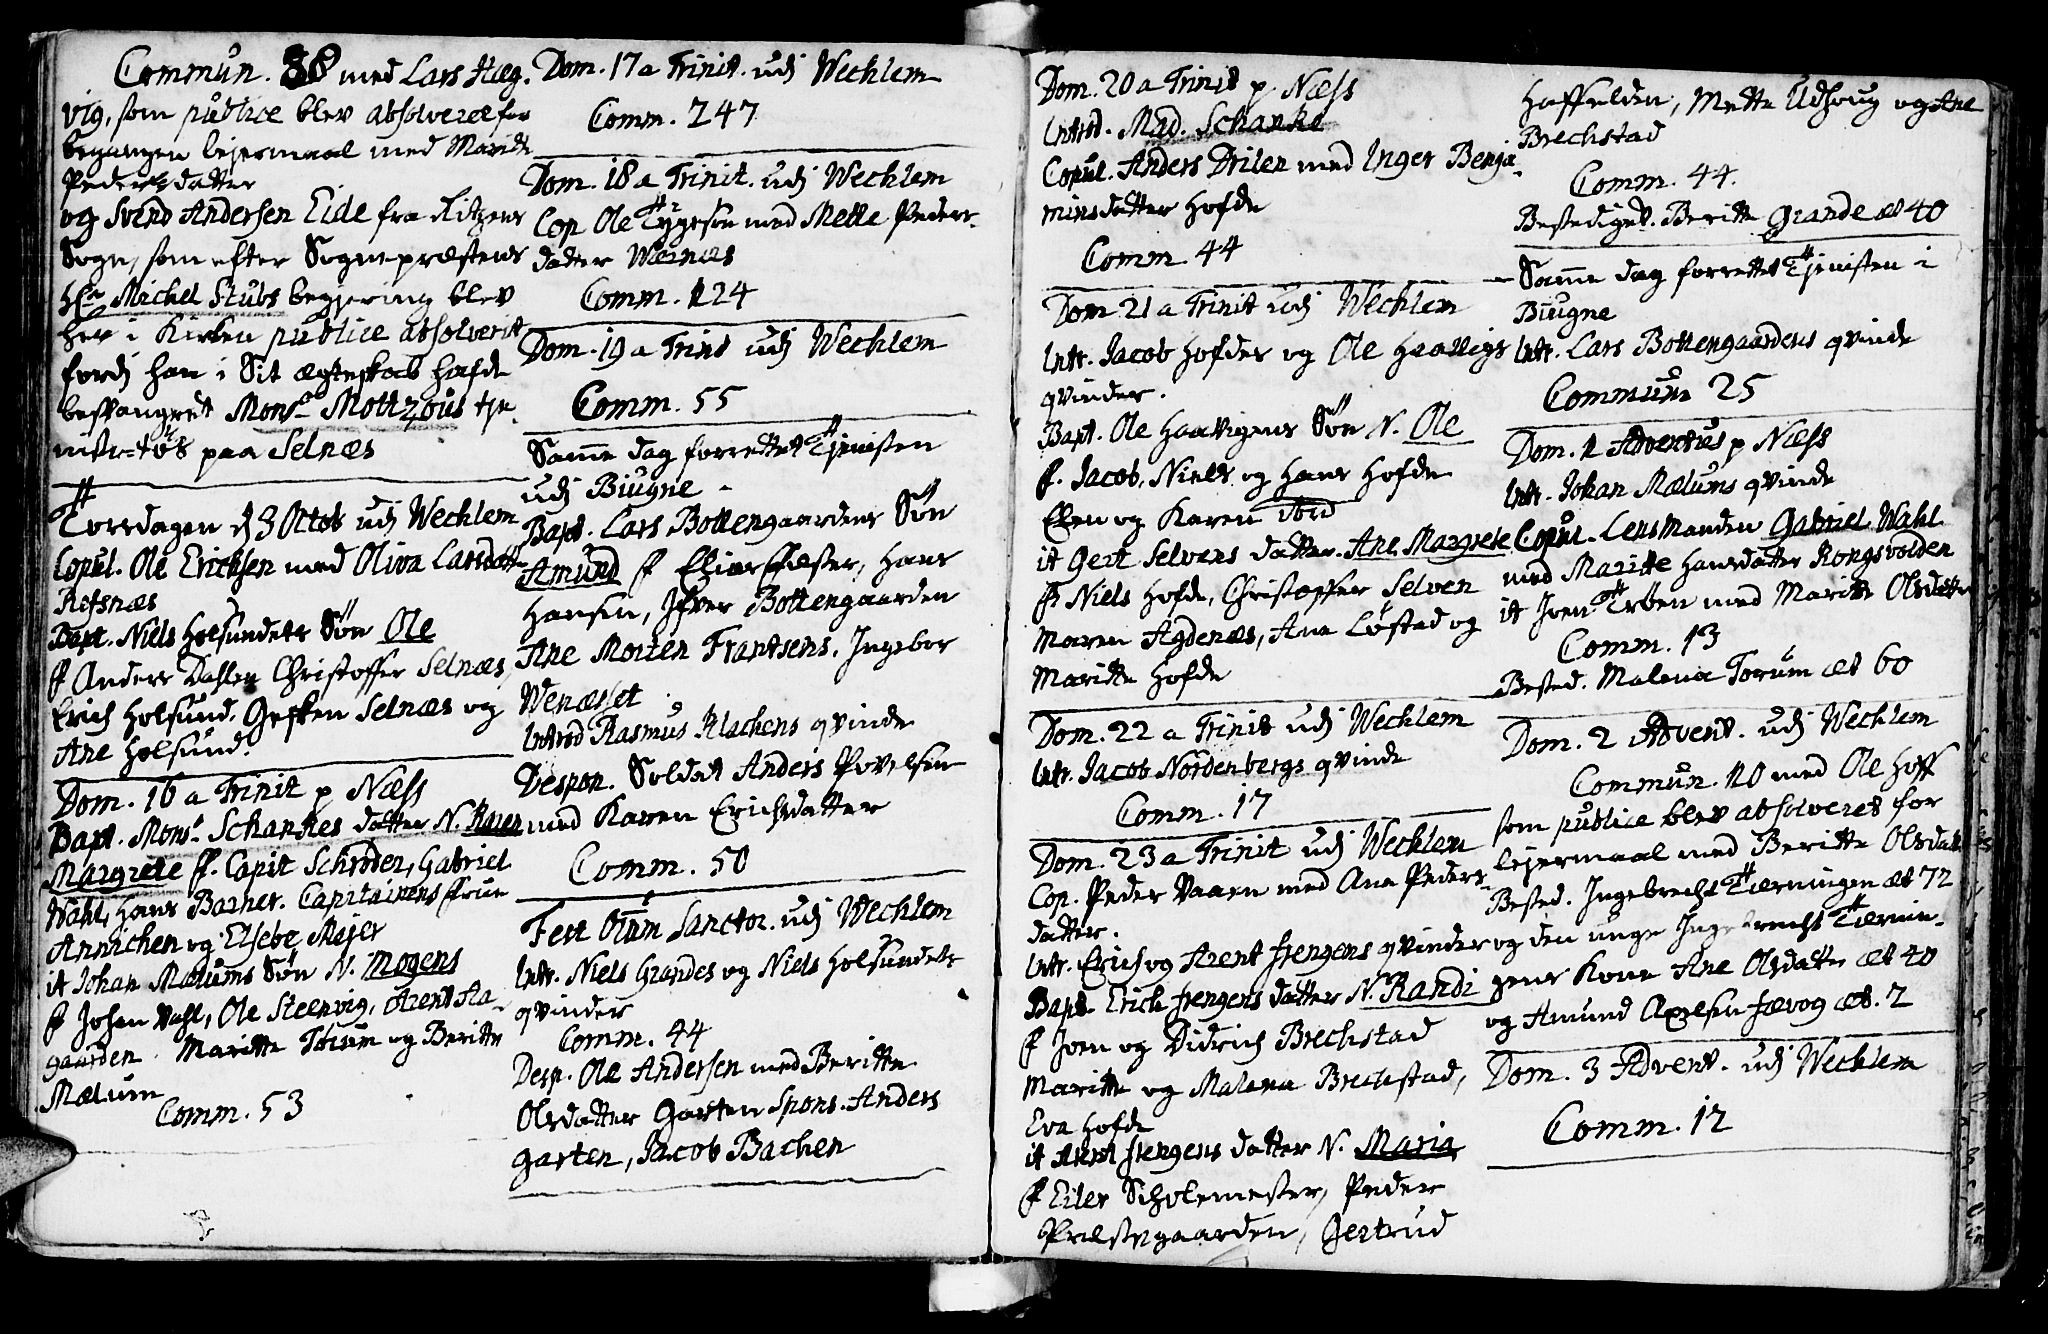 Commun. 38 med Lars Hæg.
vig, som publice blev absolveret for
begangen lejermaal med Marite
Pedersdatter
og Svend Andersen Eide fra
Sogn, som efter Sognepræstens
Hr Michel Stubs begjering blev
her i Kirken publice absolverit
fordj han i Sit ægteskab hafde
besvangret Monsr Mottzous tje
niste-tøs paa Selnæs
Torsdagen d 3 Octob udj Wechlem
Copul. Ole Erichsen med Oliva Larsdatt
Refsnæs
Bapt. Niels Holsundets Søn Ole
f Anders Dahlen Christoffer Selnæs,
Erich Holsund. Gesken Selnæs og
Ane Holsund.
Dom. 16 a Trinit p Næss
Bapt. Monsr Schankes datter N. Karen
Margrete f. Capit Schrøder, Gabriel
Wahl, Hans Barner. Capitainens Frue
Annichen og Elsebe Mejer
it Johan Mælums Søn N. Mogens
f Johan Wahl, Ole Steenvig, Arent Aa-
gaarden. Maritte Torum og Beritte
Mælum
Comm. 53
Dom. 17 a Trinit. udj Wechlem
Comm. 247
Dom. 18 a Trinit. udj Wechlem
Cop Ole Tygesøn med Mette Peders-
datter Wernæs
Comm. 124
Dom. 19 a Trinit udj Wechlem
Comm. 55
Samme dag forrettet Tjenisten
udj Biugne
Bapt. Lars Bottengaardens Søn
Amund f Elias Fæster, Hans
Hansen, Ifver Bottengaarden
Ane Morten Frantsens, Ingebor
Wenæset
Introd Rasmus Klachens qvinde
Despon. Soldat Anders Povelsen
med Karen Erichsdatter
Comm. 50
Fest Oium Sanctor. udj Wechlem
Intr. Niels Grandes og Niels Holsundets
qvinder
Comm. 44
Desp. Ole Andersen med Beritte
Olsdatter Garten Spons. Anders
Garten, Jacob Bachen
Dom. 20 a Trinit p. Næss
Introd. Mad. Schanke
Copul. Anders Drilen med Inger Benja-
mins datter Hofde
Comm. 44
Dom. 21 a Trinit udj Wechlem
Intr. Jacob Hofdes og Ole Haavigs
qvinder.
Bapt. Ole Haavigens Søn N. Ole
f. Jacob, Niels og Hans Hofde
Elen og Karen
it Gert Selvens datter. Ane Margrete
f. Niels Hofde, Christopher Selven
Maren Agdenæs, Ana Løstad og
Maritte Hofde
Dom. 22 a Trinit udj Wechlem
Intr. Jacob Nordenbergs qvinde
Comm. 17
Dom. 23 a Trinit udj Wechlem
Cop. Peder Vaaen med Ana Peders-
datter.
Intr. Erich og Arent Frengens qvinder
Bapt. Erich Frengens datter N. Randi
f Joen og Didrich Brechstad
Maritte og Malena Brechstad,
Eva Hofde
it Arent Frengens datter N. Maria
f Eiler Scholemester, Peder
Prestegaarden, Gertrud
Haffelden, Mette Udhoug og Ane
Brechstad
Comm. 44.
Bestediget. Beritte Grande æt 40
Samme dag forrettet Tjenisten i
Biugne
Intr. Lars Bottengaardens qvinde
Commun 25
Dom. 1 Adventus p Næss
Intr. Johan Mælums qvinde
Copul. Lensmanden Gabriel Wahl
med Maritte Hansdatter Rongsvolden
it Joen Trøen med Maritte Olsdatter
Comm. 13
Bested. Malena Torum æt 60
Dom. 2 Advent. udj Wechlem
Commun. 110 med Ole Hoff
som publice blev absolveret for
lejermaal med Beritte Olsdatt
Bested. Ingebrecht Tærningen æt 72
og den unge Ingebrecht Tærnin-
gens Kone Ane Olsdatter æt 40
og Amund Axelsen Fævog æt. 2
Dom. 3 Advent. udj Wechlem
Comm. 12